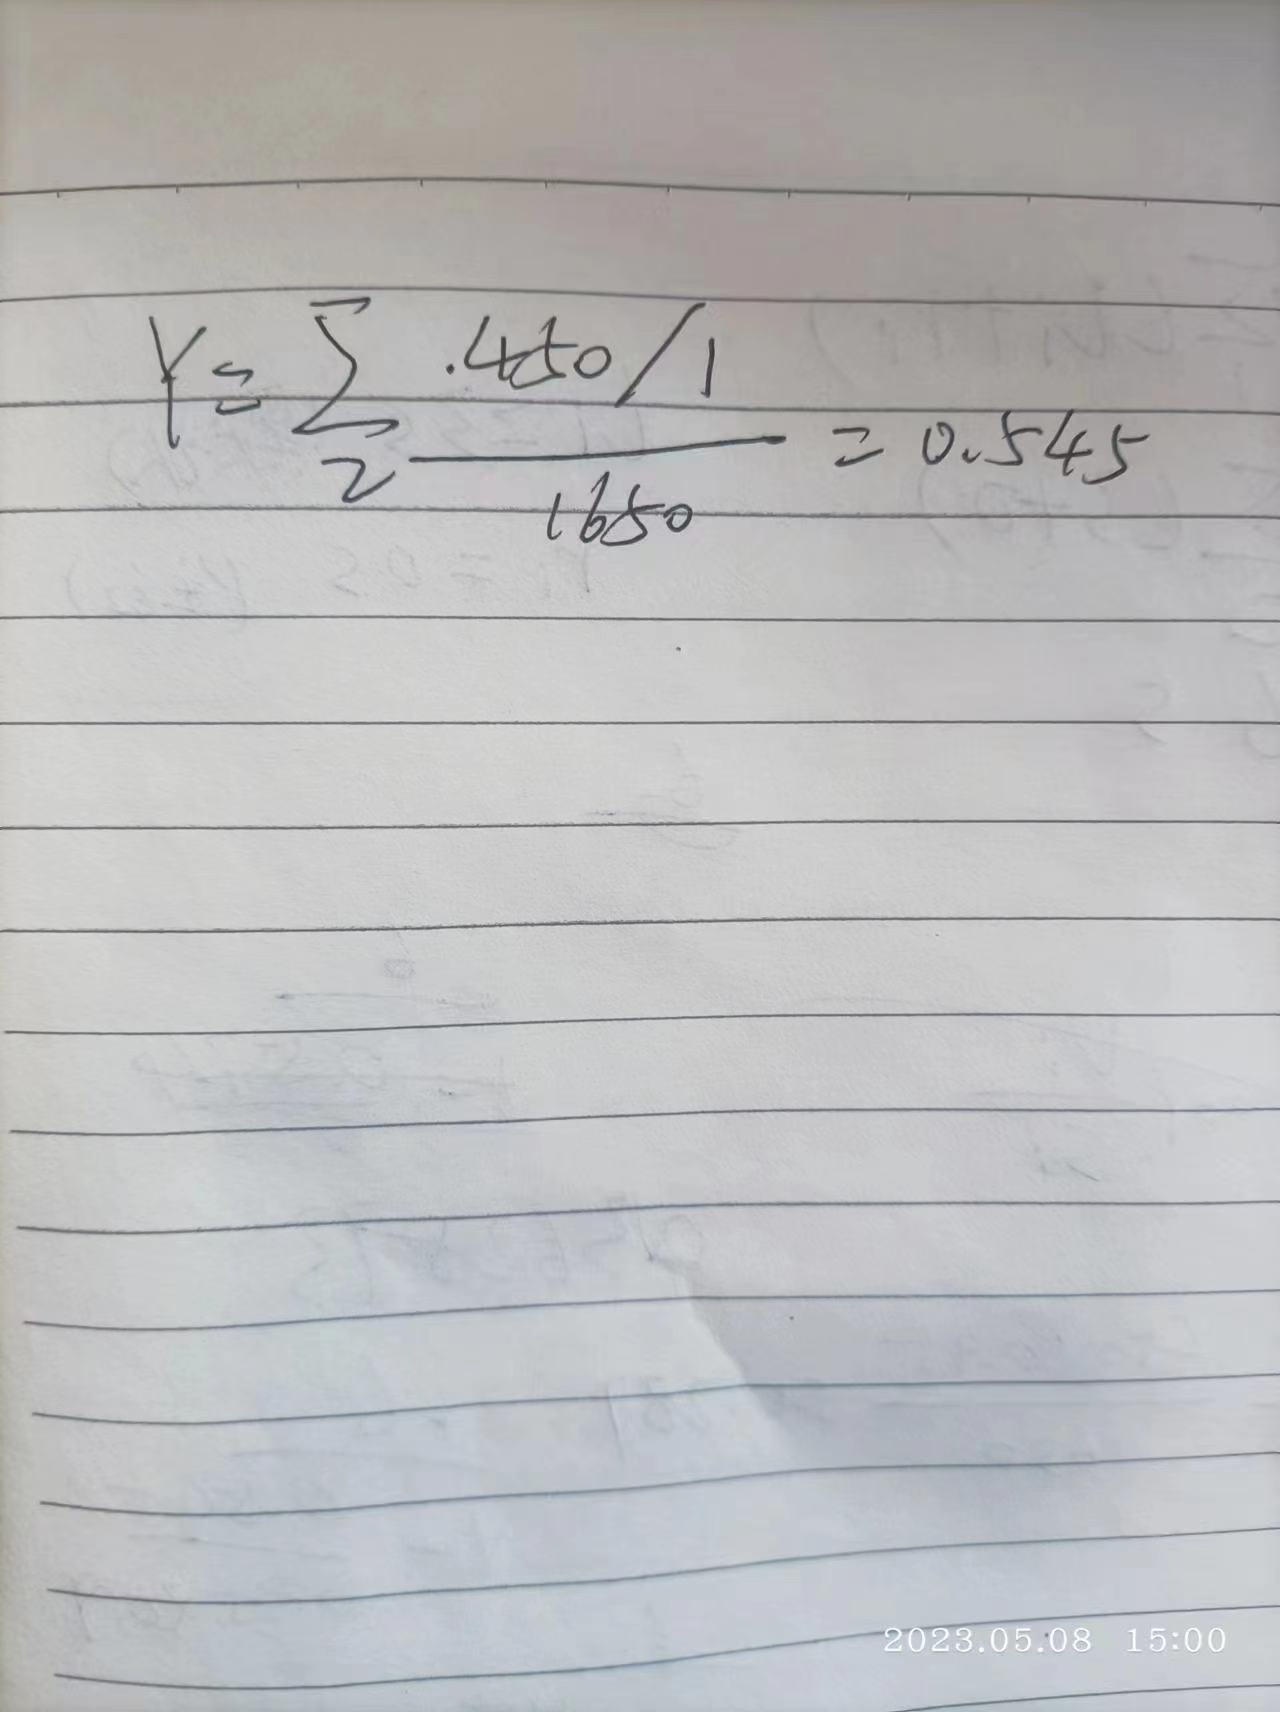 Y = Σ 2 .450/1 / 1650 = 0.545
2023.05.08 15:00